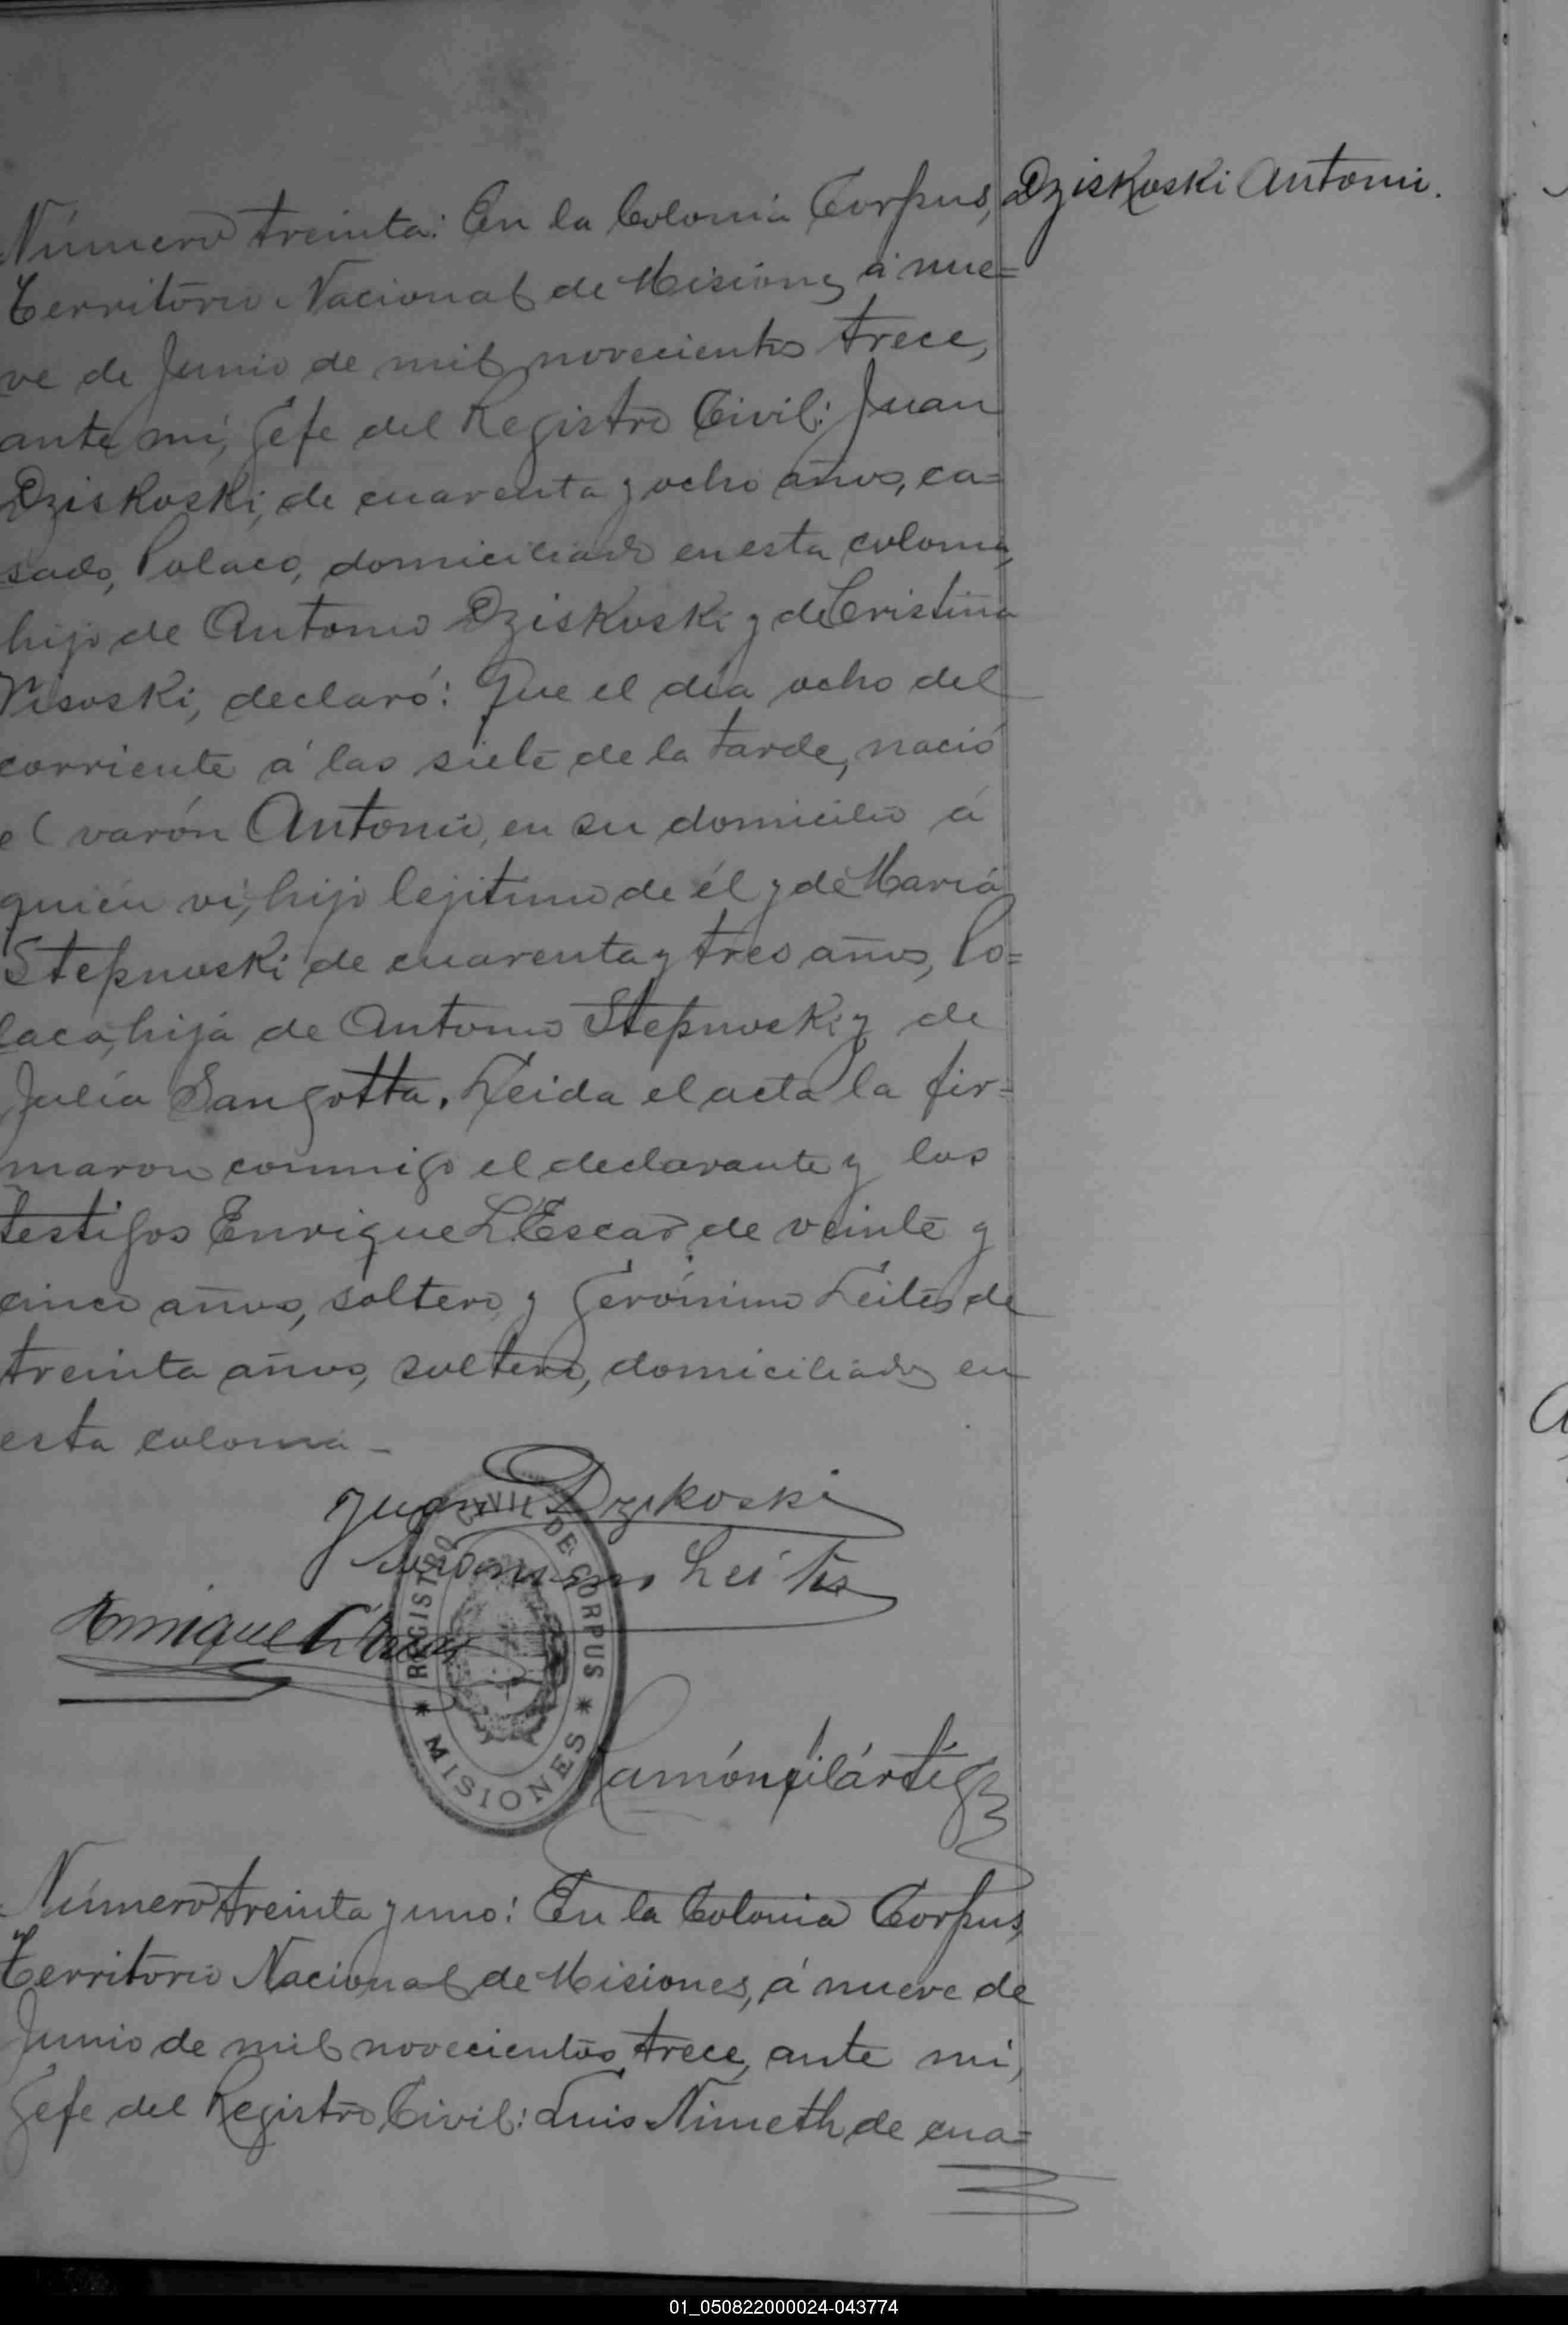 Dziskoski Antonio.
Número treinta: En la Colonia Corpus,
Territorio Nacional de Misiones, á nue=
ve de Junio de mil novecientos trece,
ante mí, Gefe del Registro Civil: Juan
Dziskoski, de cuarenta y ocho años, ca=
sado, Polaco, domiciliado en esta colonia,
hijo de Antonio Dziskoski y de Cristina
Visoski, declaró: Que el día ocho del
corriente á las siete de la tarde, nació
el varón Antonio, en su domicilio á
quién ví, hijo lejitimo de él y de María
Stepnoski de cuarenta y tres años, Po=
laca, hija de Antonio Stepnoski y de
Julia Sangotta. Leida el acta la fir=
maron conmigo el declarante y los
testigos Enrique L'Escar de veinte y
cinco años, soltero, y Gerónimo Leites de
treinta años, soltero, domiciliados en
esta colonia -
Juan Dzikoski
Leites
Enrique
REGISTRO CIVIL DE CORPUS
* MISIONES *
Ramón
Número treinta y uno: En la Colonia Corpus,
Territorio Nacional de Misiones, á nueve de
Junio de mil novecientos trece, ante mí,
Gefe del Registro Civil: Luis Nimeth de cua=
01_050822000024-043774